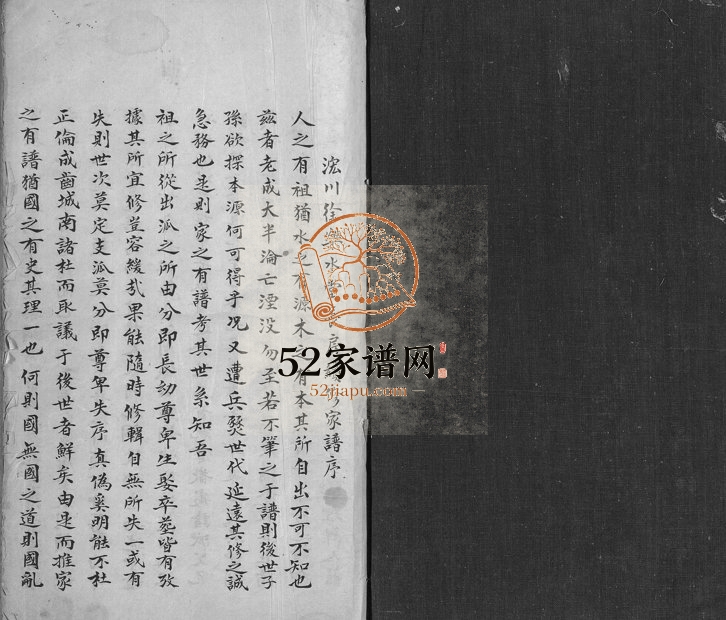 浤川徐 水 家譜序
人之有祖猶水之有源木之有本其所自出不可不知也
兹者老成大半淪亡湮没勿至若不筆之于譜則後世子
孫欲探本源何可得乎况又遭兵燹世代延遠其修之誠
急務也是則家之有譜考其世系知吾
祖之所從出派之所由分即長幼尊卑生娶卒塟皆有攷
據其所宜修豈容緩哉果能隨時修輯自無所失一或有
失則世次莫定支派莫分即尊卑失序真偽奚明能不杜
正倫成齒城南諸杜而取議于後世者鮮矣由是而推家
之有譜猶國之有史其理一也何則國無國之道則國亂
52家谱网
52jiapu.com